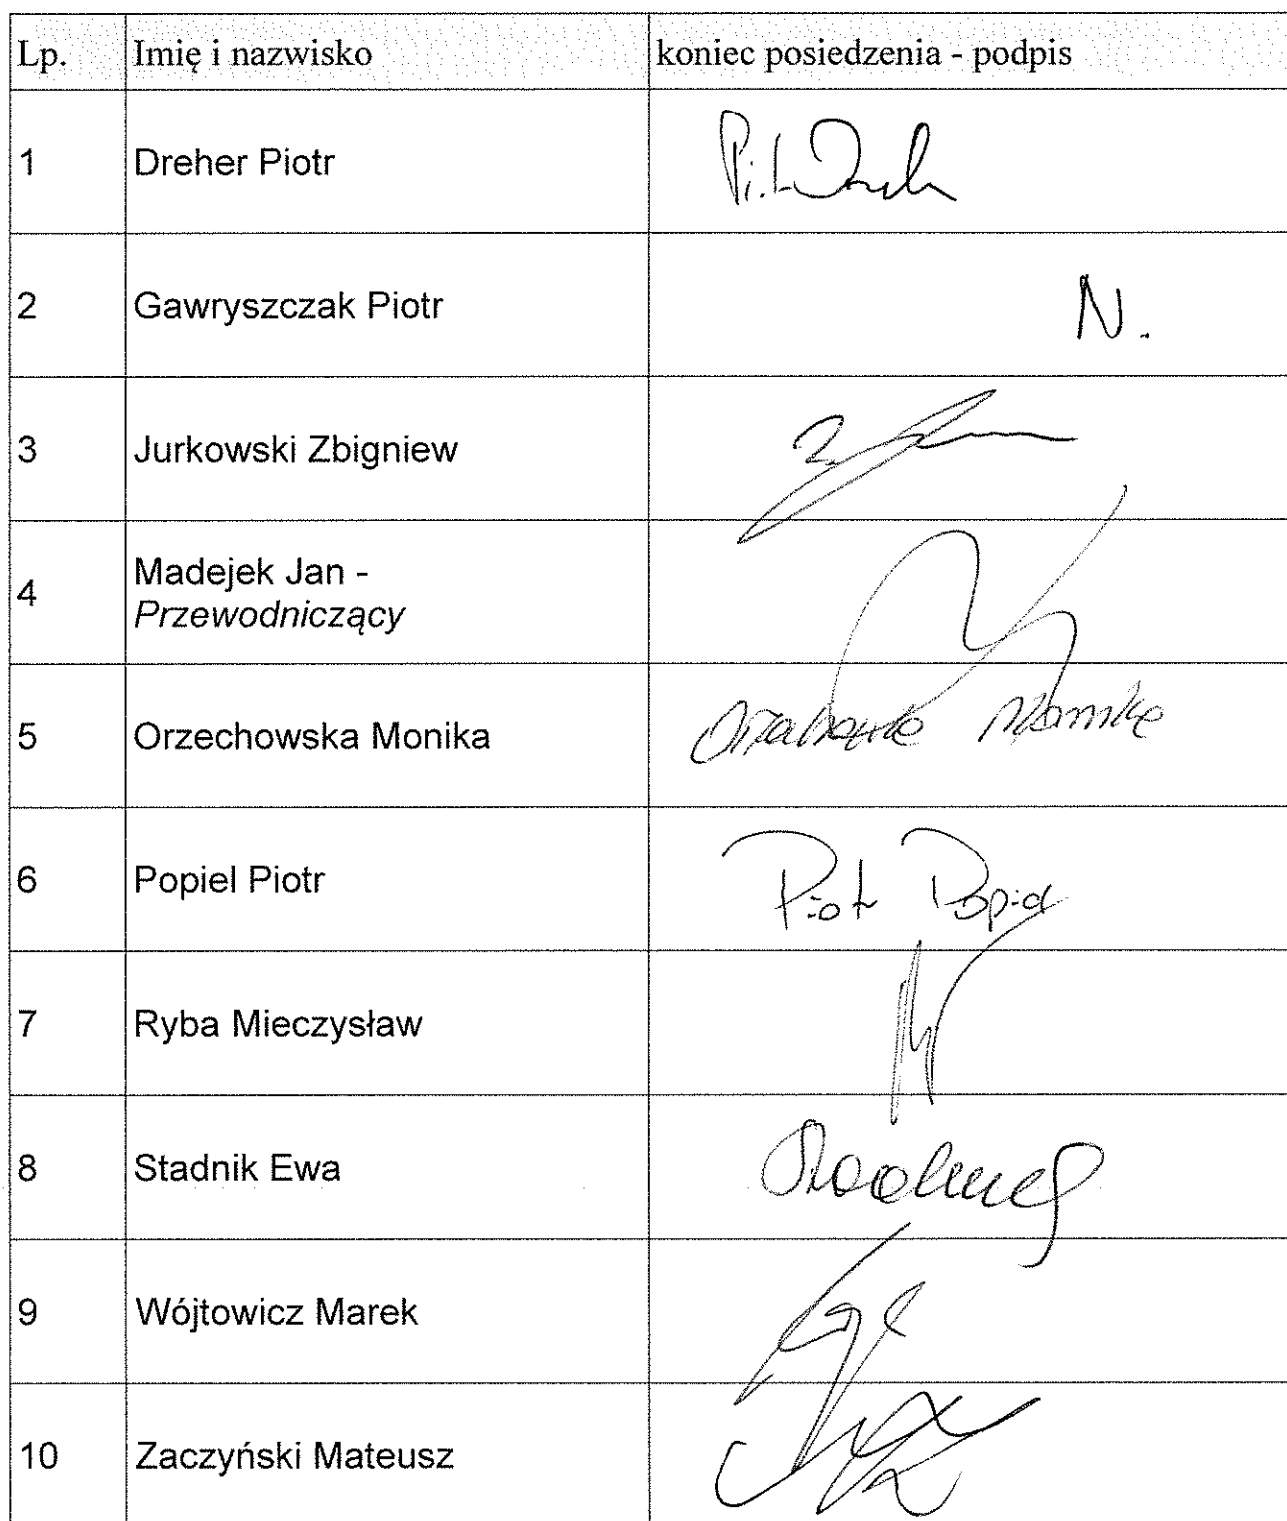 Lp. Imię i nazwisko koniec posiedzenia - podpis
1 Dreher Piotr
2 Gawryszczak Piotr N.
3 Jurkowski Zbigniew
4 Madejek Jan -
Przewodniczący
5 Orzechowska Monika
6 Popiel Piotr Piotr Popiel
7 Ryba Mieczysław
8 Stadnik Ewa
9 Wójtowicz Marek
10 Zaczyński Mateusz